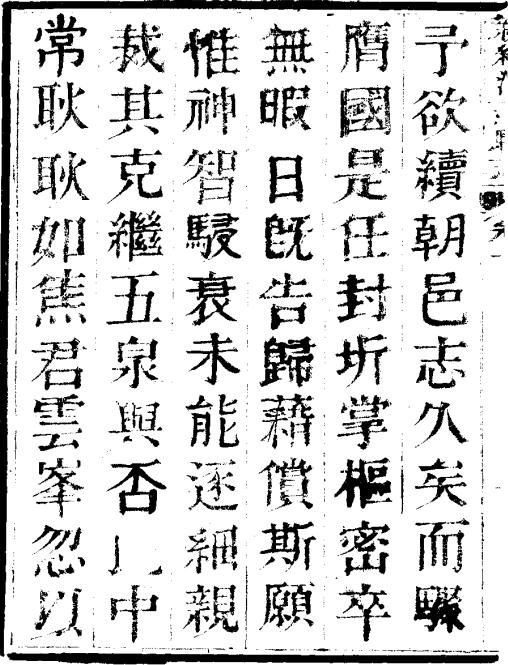 予欲續朝邑志久矣而驟
膺國是任封圻掌樞密卒
無暇日既告歸藉償斯願
惟神智駸衰未能逐細親
裁其克繼五泉與否中
常耿耿如焦君雲峯忽以